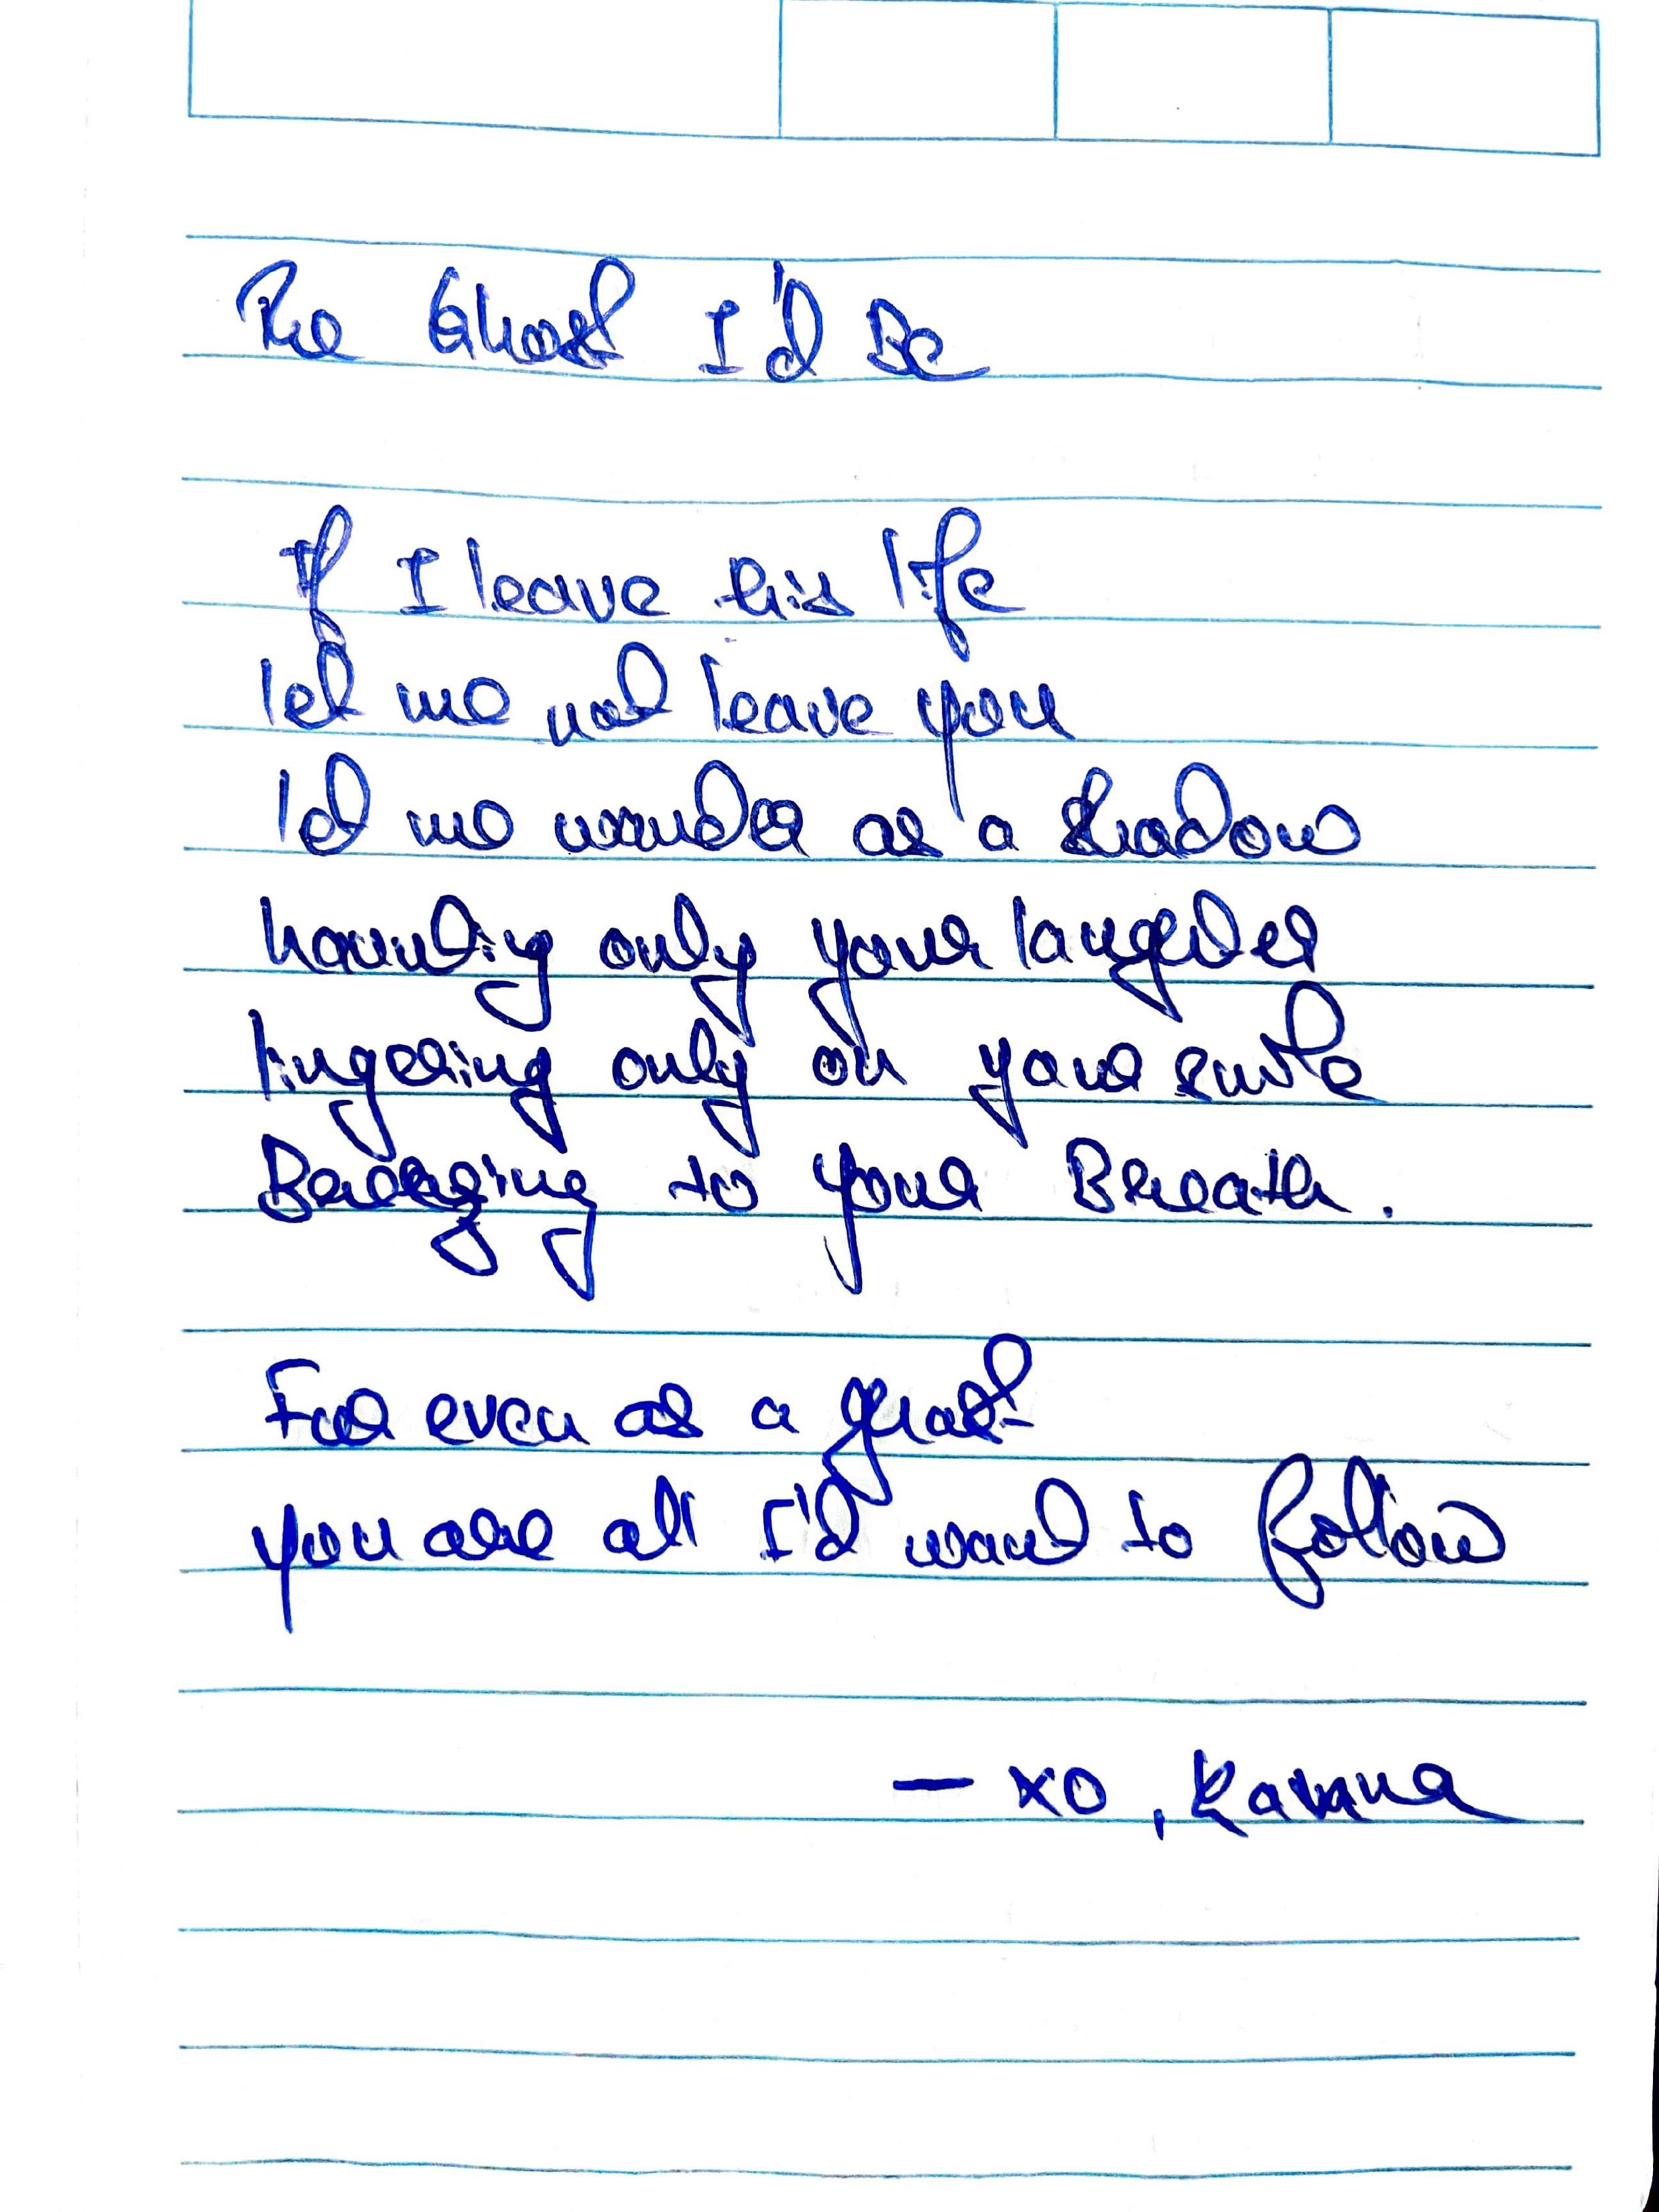 The Ghost I'd Be
If I leave this life
let me not leave you
let me wander as a shadow
haunting only your laughter
lingering only on your smile
Belonging to your Breath.
For even as a ghost
you are all I'd want to follow
— XO,